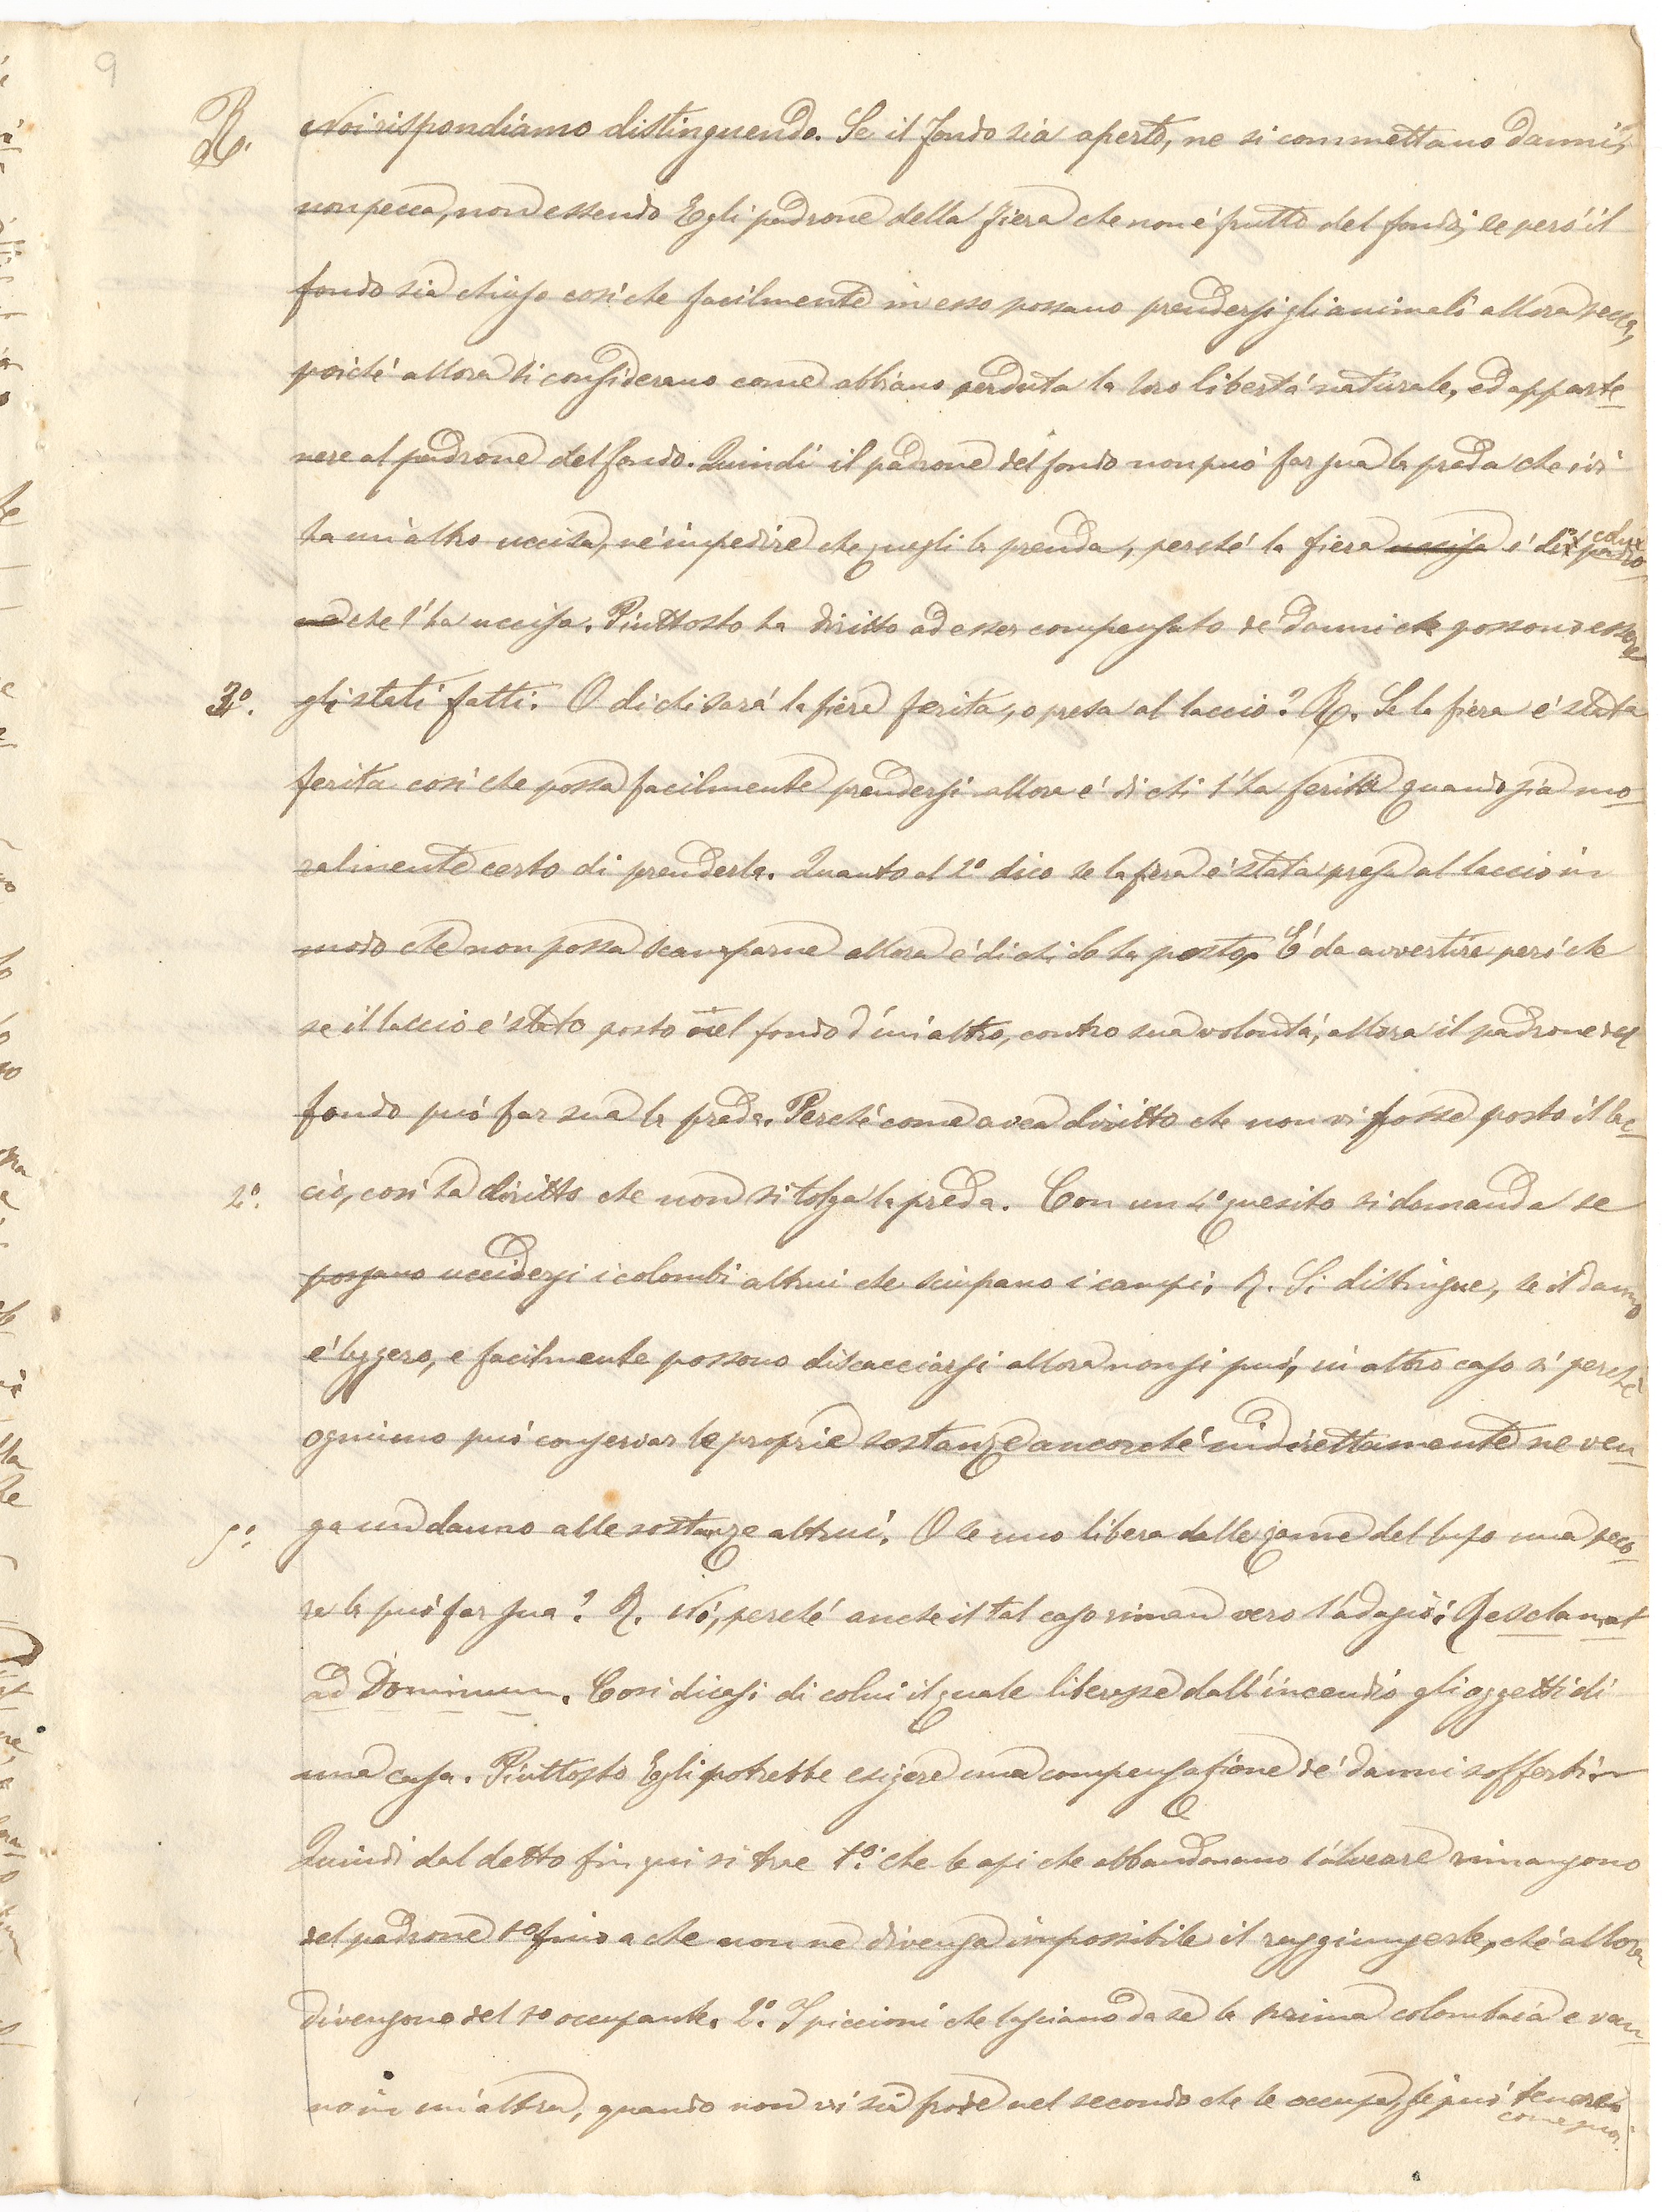 9
R. Noi rispondiamo distinguendo. Se il fondo sia aperto, ne si commettano danni,
non pecca, non essendo Egli padrone della fiera che non é frutto del fondo; se peró il
fondo sia chiuso cosí che facilmente in esso possano prendersi gli animali allora pecca,
poiché allora si considerano come abbiano perduta la loro libertá naturale, ed apparte-
nere al padrone del fondo. Quindi il padrone del fondo non puó far sua la preda che ivi
ha un'altro uccisa, né impedire che quegli la prenda, perché la fiera uccisa é di colui padro-
ne che l'ha uccisa. Piuttosto ha diritto ad esser compensato de' danni che possono esser
3º. gli stati fatti. O di chi sará la fiera ferita, o presa al laccio? R. Se la fiera é stata
ferita cosí che possa facilmente prendersi allora é di chi l'ha ferita quando sia mo-
ralmente certo di prenderla. Quanto al 2º dico se la fiera é stata presa al laccio in
modo che non possa scamparne allora é di chi lo ha posto. É da avvertire peró che
se il laccio é stato posto nel fondo d'un'altro, contro sua volontá, allora il padrone del
fondo puó far sua la preda. Perché come avea diritto che non vi fosse posto il lac-
2º. cio, cosí ha diritto che non si tolga la preda. Con un 4º quesito si domanda se
possano uccidersi i colombi altrui che sciupano i campi. R. Si distingue, se il danno
é leggero, e facilmente possono discacciarsi allora non si puó, in altro caso sí perché
ognuno puó conservar le proprie sostanze ancorché indirettamente ne ven-
5º. ga un danno alle sostanze altrui. O se uno libera dalle zanne del lupo una peco-
ra la puó far sua? R. Nó, perché anche il tal caso riman vero l'adagio: Res clamat
ad Dominum. Cosí dicasi di colui il quale liberasse dall'incendio gli oggetti di
una casa. Piuttosto Egli potrebbe esigere una compensazione de' danni sofferti.
Quindi dal detto fin qui si trae 1º: che le api che abbandonano l'alveare rimangono
del padrone 1º fino a che non ne divenga impossibile il raggiungerle, ché allora
divengono del 1º occupante. 2º. I piccioni che lasciano da se la prima colombaia e van-
no in un'altra, quando non vi sia frode nel secondo che le occupa, se puó tenere
come suoi.